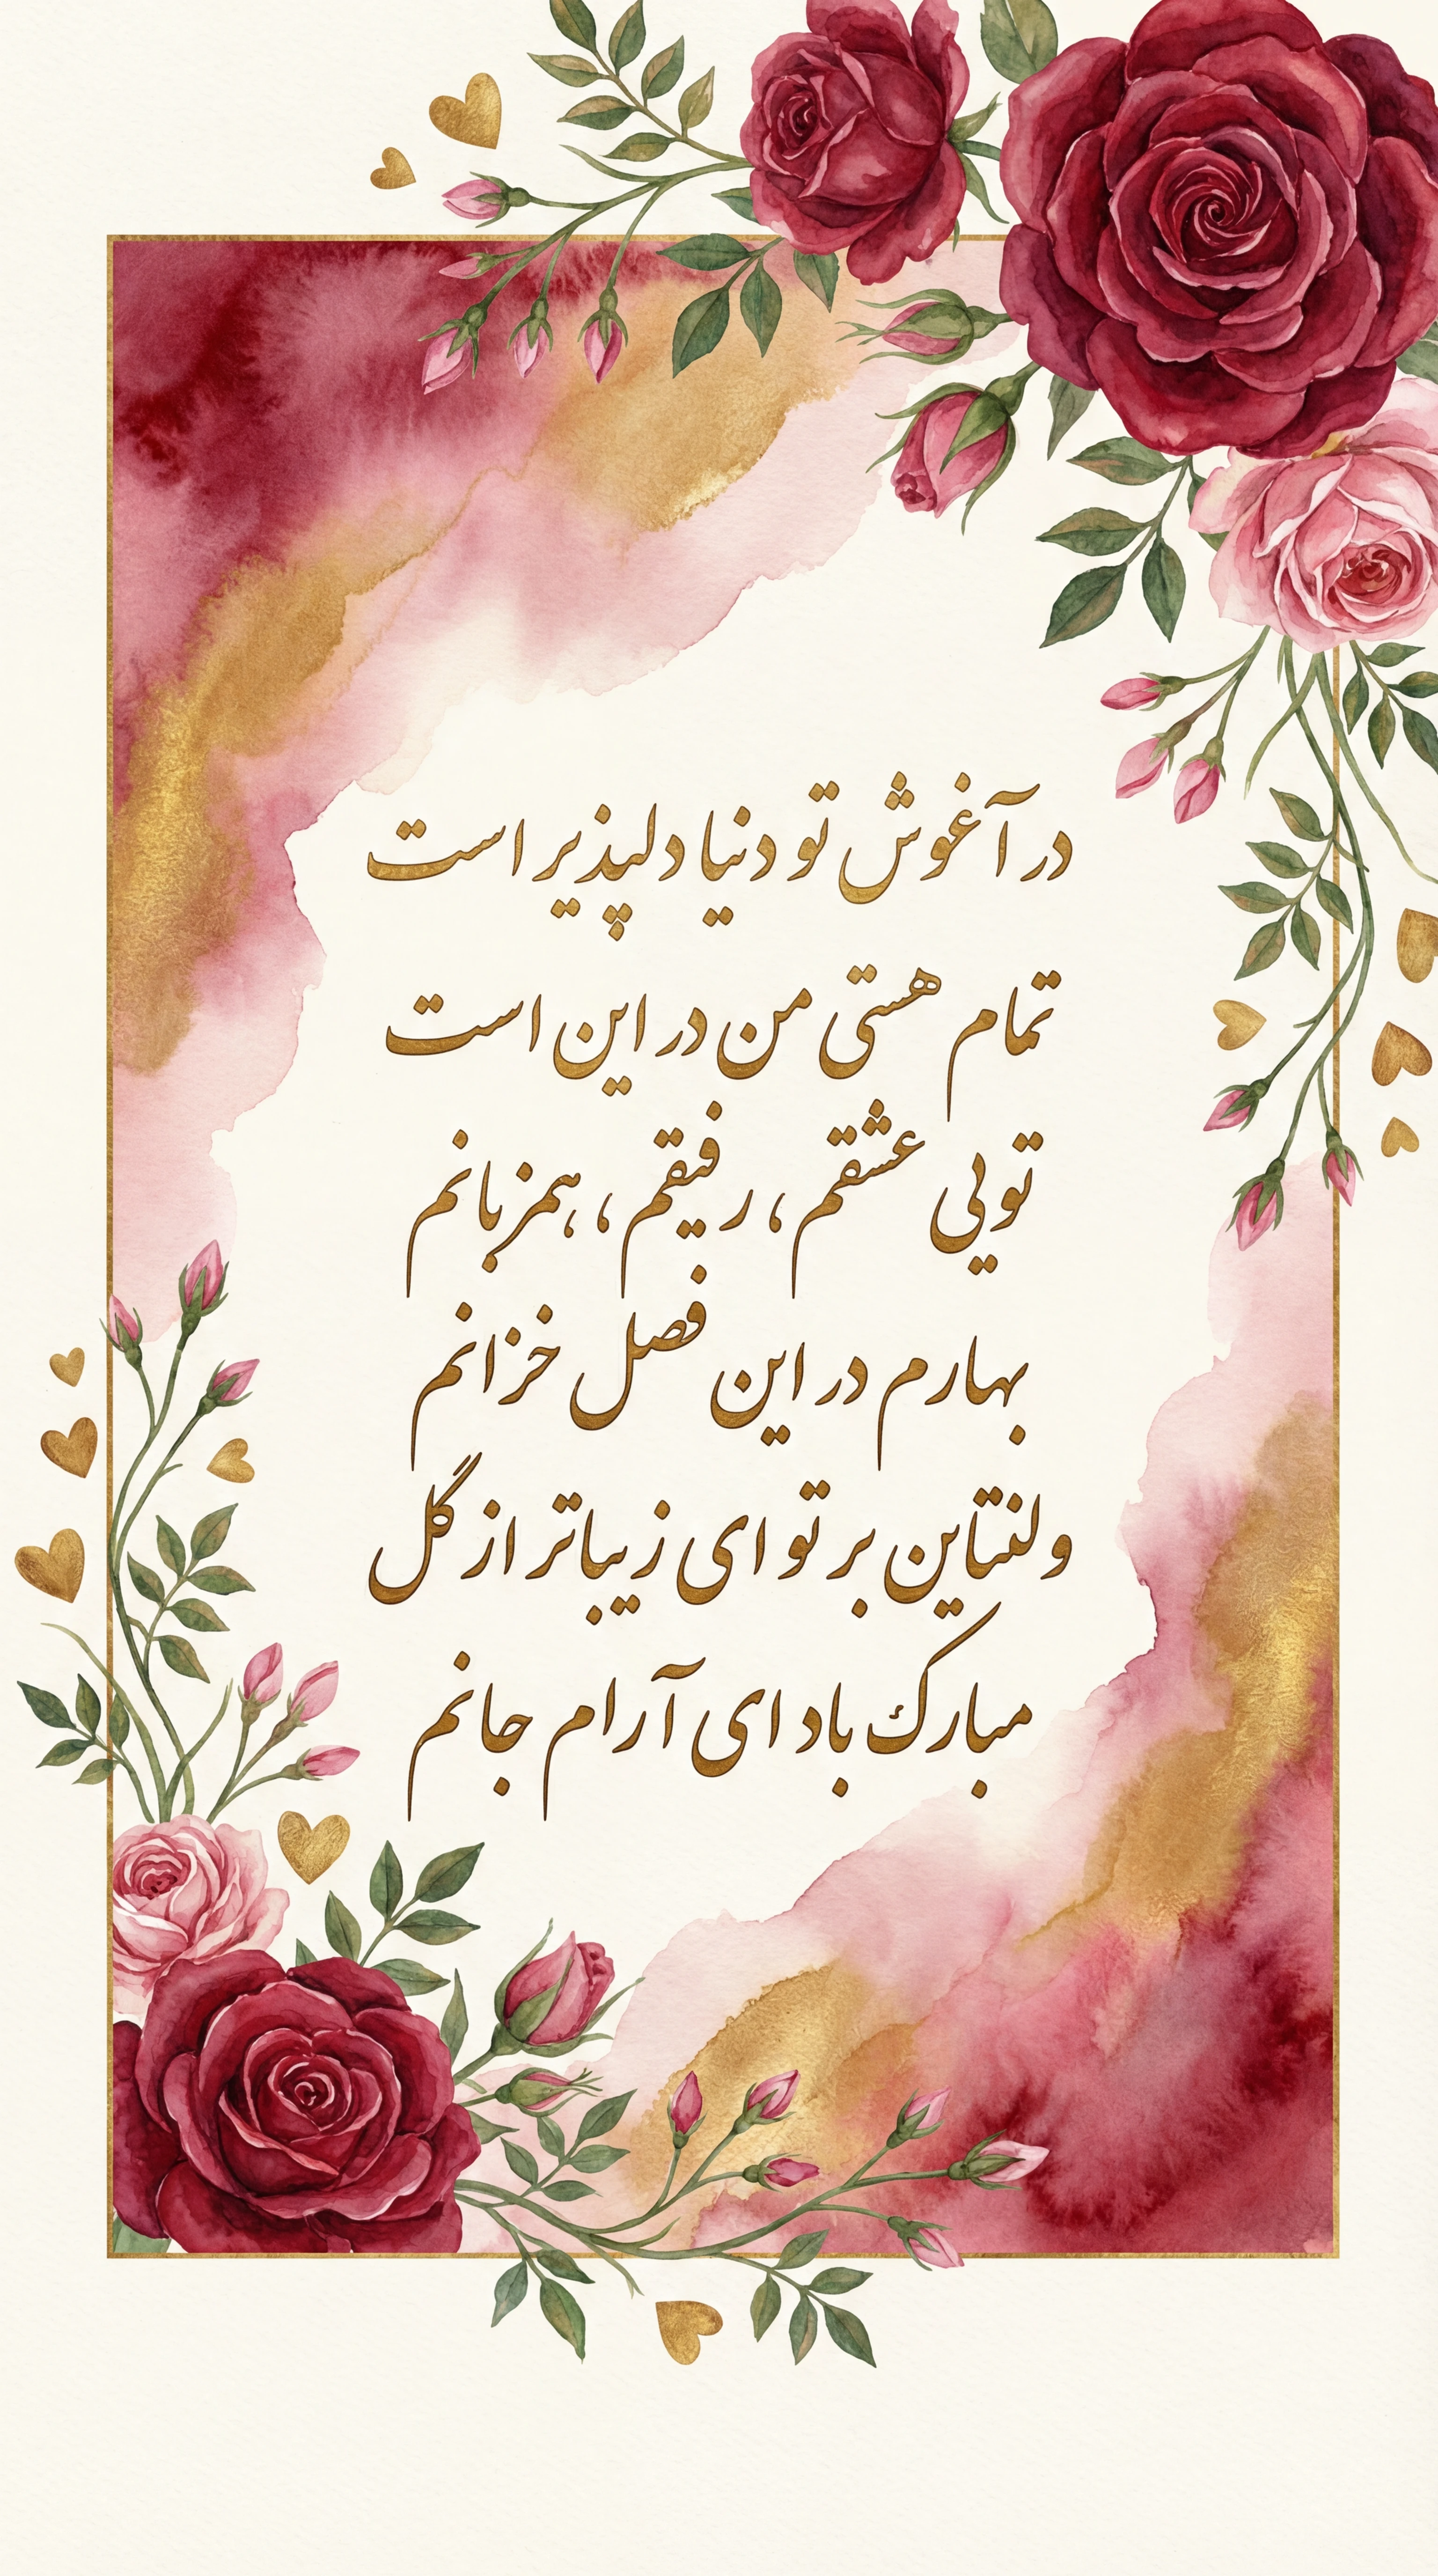 در آغوش تو دنیا دلپذیر است
تمام هستی من در این است
تویی عشقم، رفیقم، همزبانم
بهارم در این فصل خزانم
ولنتاین بر تو ای زیباتر از گل
مبارک باد ای آرام جانم